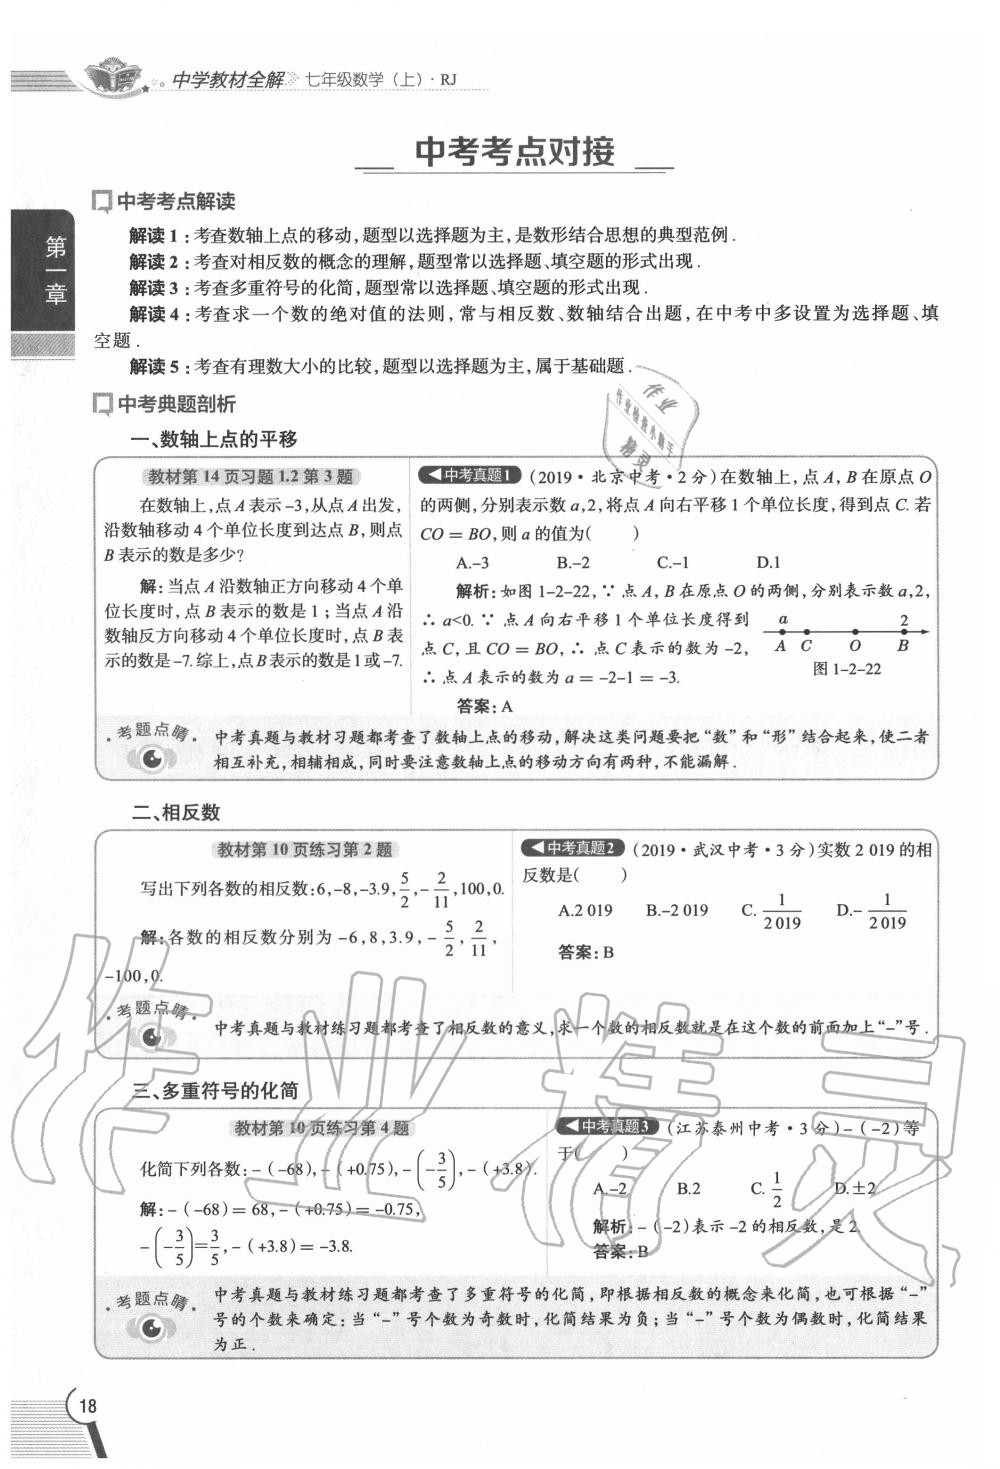 中学教材全解 七年级数学(上)·RJ
中考考点对接
中考考点解读
解读1:考查数轴上点的移动,题型以选择题为主,是数形结合思想的典型范例.
解读2:考查对相反数的概念的理解,题型常以选择题、填空题的形式出现.
解读3:考查多重符号的化简,题型常以选择题、填空题的形式出现.
解读4:考查求一个数的绝对值的法则,常与相反数、数轴结合出题,在中考中多设置为选择题、填
空题.
解读5:考查有理数大小的比较,题型以选择题为主,属于基础题.
第一章
中考典题剖析
一、数轴上点的平移
教材第14页习题1.2第3题
在数轴上,点A表示-3,从点A出发,
沿数轴移动4个单位长度到达点B,则点
B表示的数是多少?
解:当点A沿数轴正方向移动4个单
位长度时,点B表示的数是1;当点A沿
数轴反方向移动4个单位长度时,点B表
示的数是-7.综上,点B表示的数是1或-7.
中考真题1 (2019·北京中考·2分)在数轴上,点A,B在原点O
的两侧,分别表示数a,2,将点A向右平移1个单位长度,得到点C.若
CO=BO,则a的值为( )
A.-3 B.-2 C.-1 D.1
解析:如图1-2-22,∵点A,B在原点O的两侧,分别表示数a,2,
∴a<0.∵点A向右平移1个单位长度得到
点C,且CO=BO,∴点C表示的数为-2,
∴点A表示的数为a=-2-1=-3.
答案:A
a 2
A C O B
图1-2-22
考题点睛
中考真题与教材习题都考查了数轴上点的移动,解决这类问题要把“数”和“形”结合起来,使二者
相互补充,相辅相成,同时要注意数轴上点的移动方向有两种,不能漏解.
二、相反数
教材第10页练习第2题
写出下列各数的相反数:6,-8,-3.9,5/2,-2/11,100,0.
解:各数的相反数分别为-6,8,3.9,-5/2,2/11,
-100,0.
中考真题2 (2019·武汉中考·3分)实数2 019的相
反数是( )
A.2 019 B.-2 019 C.1/2 019 D.-1/2 019
答案:B
考题点睛
中考真题与教材练习题都考查了相反数的意义,求一个数的相反数就是在这个数的前面加上“-”号.
三、多重符号的化简
教材第10页练习第4题
化简下列各数:-(-68),-(+0.75),-(-3/5),-(+3.8).
解:-(-68)=68,-(+0.75)=-0.75,
-(-3/5)=3/5,-(+3.8)=-3.8.
中考真题3 (江苏泰州中考·3分)-(-2)等
于( )
A.-2 B.2 C.1/2 D.±2
解析:-(-2)表示-2的相反数,是2.
答案:B
考题点睛
中考真题与教材练习题都考查了多重符号的化简,即根据相反数的概念来化简,也可根据“-”
号的个数来确定:当“-”号个数为奇数时,化简结果为负;当“-”号个数为偶数时,化简结果
为正.
18
作业
作业检查小助手
精灵
作业精灵